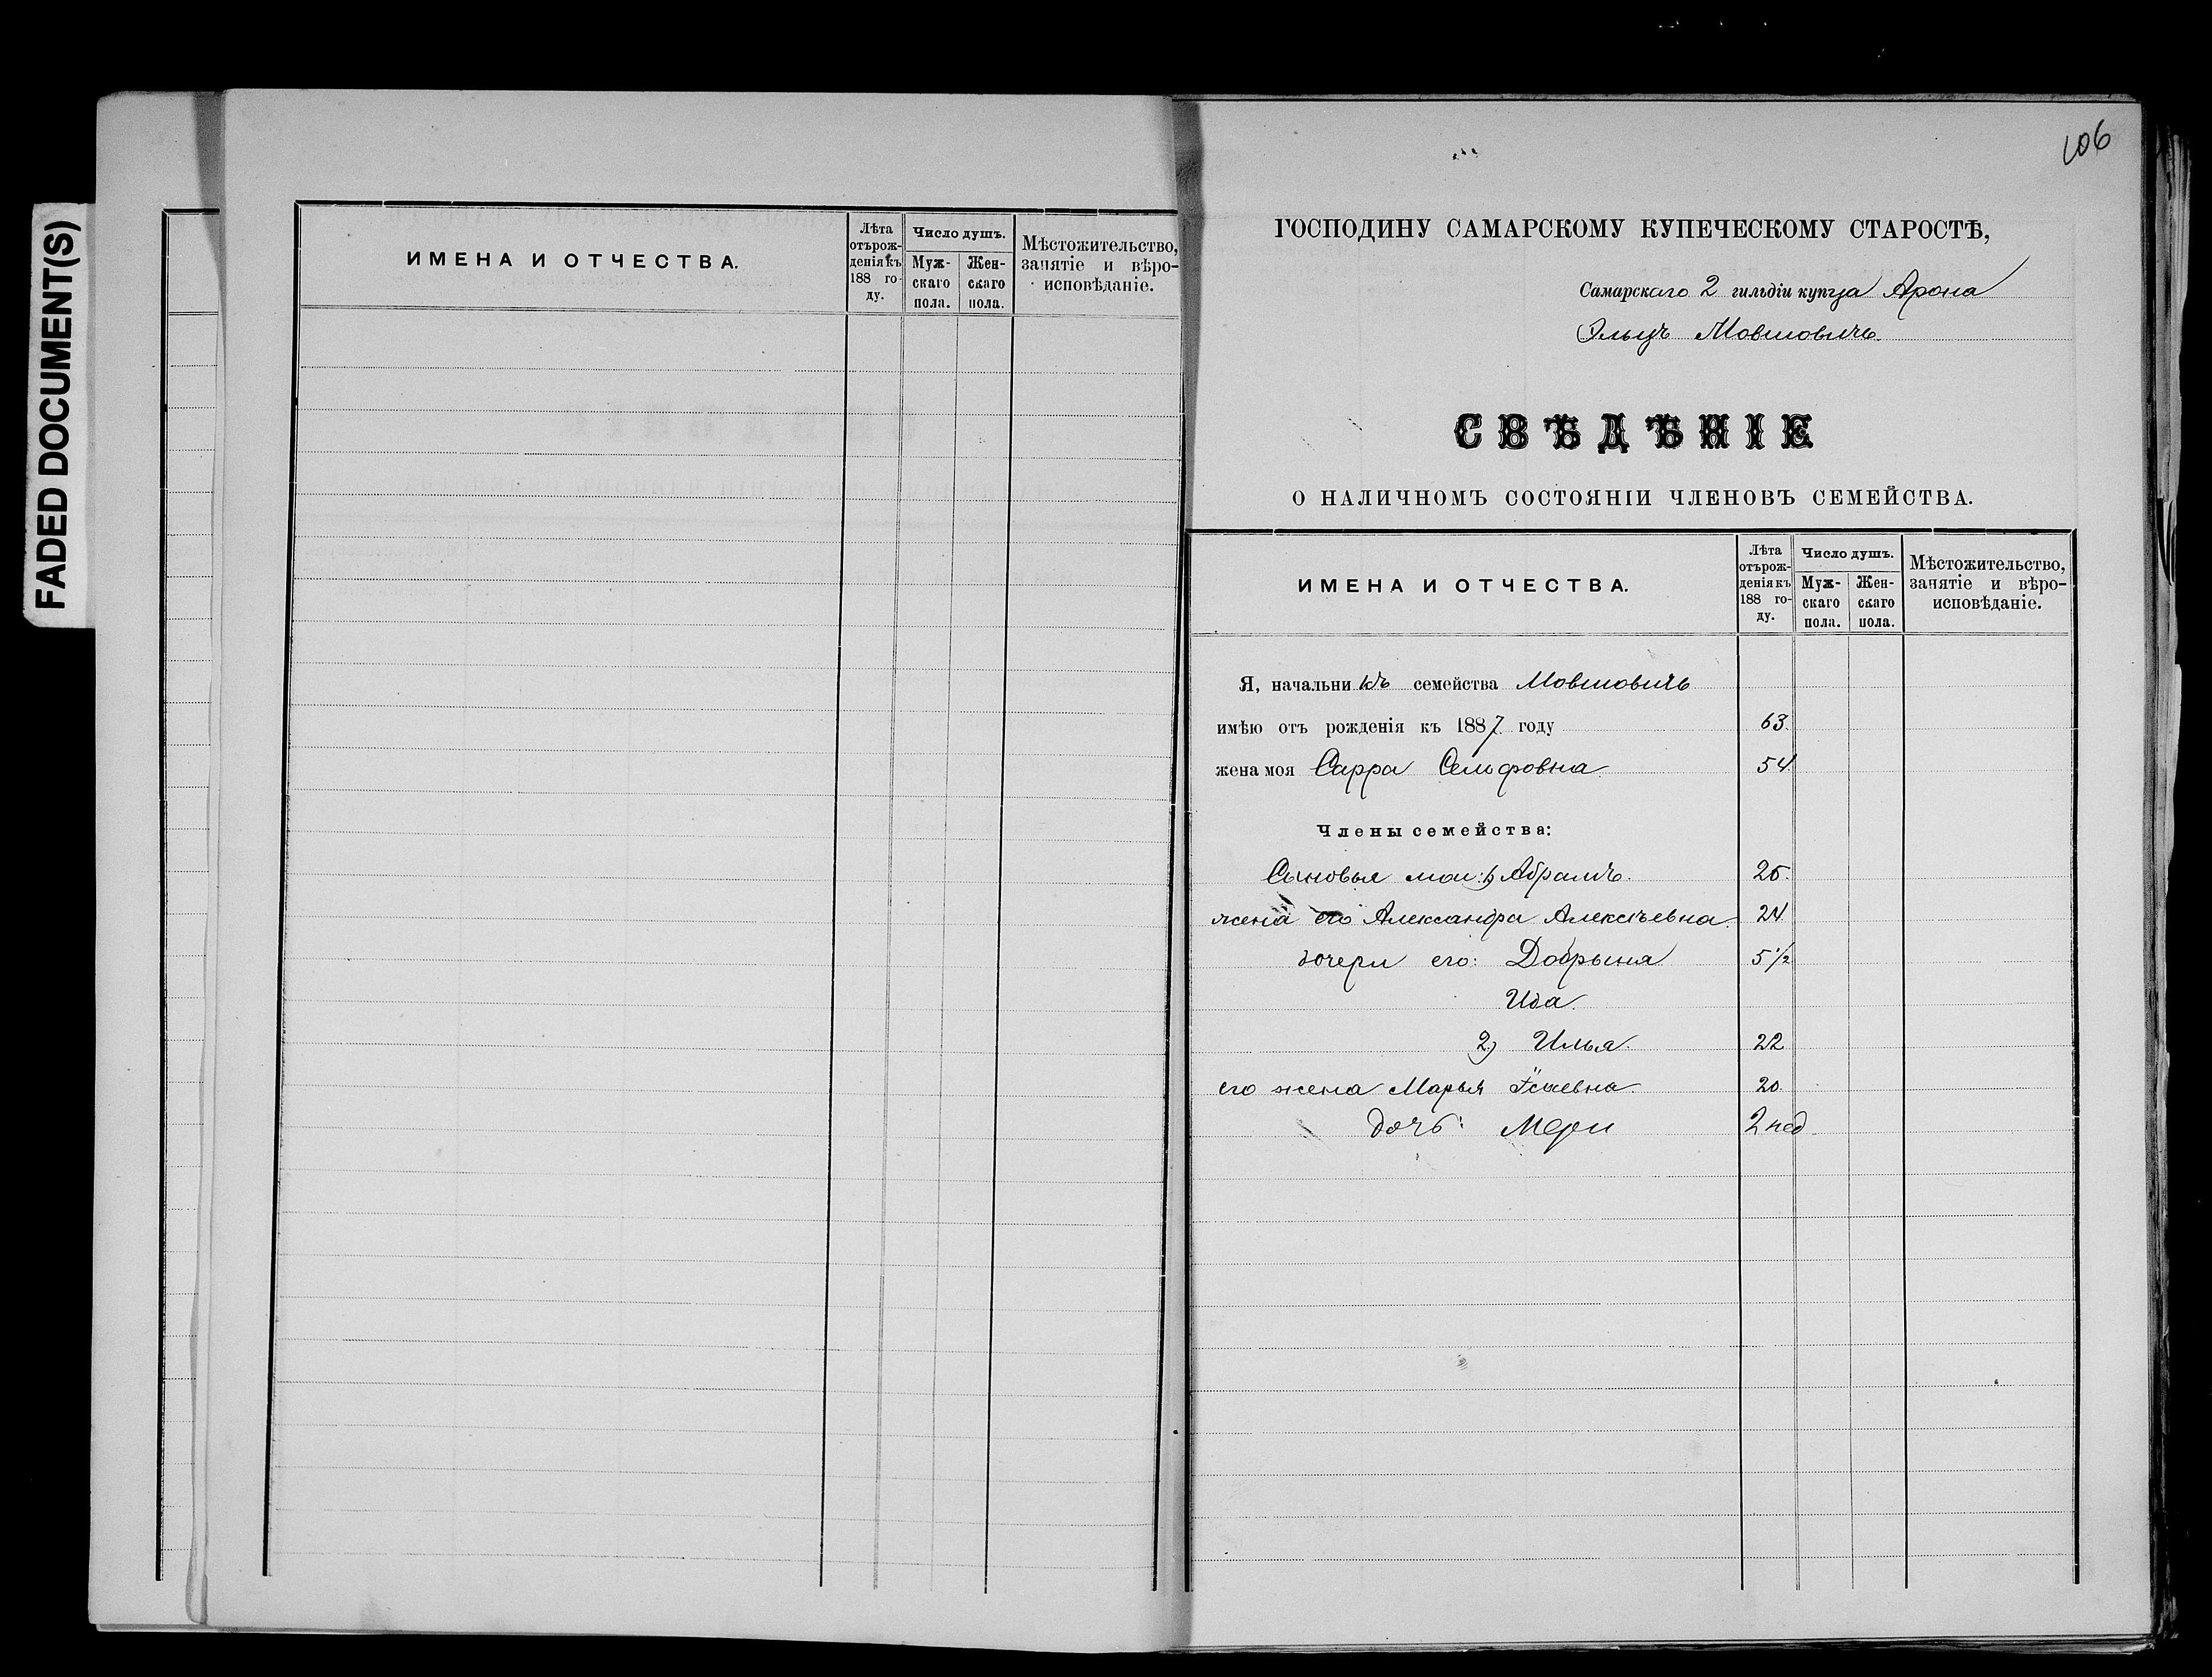 FADED DOCUMENT(S)
ИМЕНА И ОТЧЕСТВА.
Лѣта
отърож-
денія къ
188 го-
ду.
Число душъ.
Муж-
скаго
пола.
Жен-
скаго
пола.
Мѣстожительство,
занятіе и вѣро-
исповѣданіе.
106
ГОСПОДИНУ САМАРСКОМУ КУПЕЧЕСКОМУ СТАРОСТѢ,
Самарскаго 2 гильдіи купца Арона
Мовшовичъ
СВѢДѢНІЕ
О НАЛИЧНОМЪ СОСТОЯНІИ ЧЛЕНОВЪ СЕМЕЙСТВА.
ИМЕНА И ОТЧЕСТВА.
Лѣта
отърож-
денія къ
188 го-
ду.
Число душъ.
Муж-
скаго
пола.
Жен-
скаго
пола.
Мѣстожительство,
занятіе и вѣро-
исповѣданіе.
Я, начальникъ семейства Мовшовичъ
имѣю отъ рожденія къ 1887 году 63.
жена моя Сарра 54
Члены семейства:
Сыновья мои: 1) Абрамъ. 25.
жена его Александра Алексѣевна. 24
дочери его: Добрыня 5 1/2
Ида.
2) Илья. 22
его жена Марья 20.
дочь: Мери 2 нед